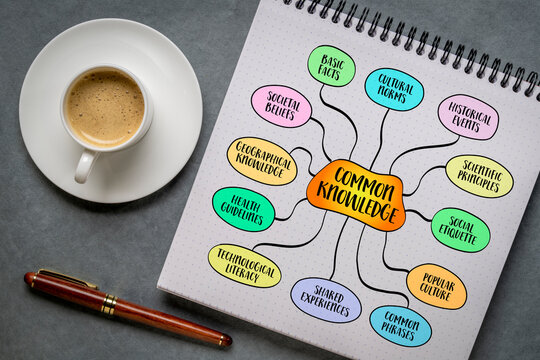 BASIC
FACTS
CULTURAL
NORMS
HISTORICAL
EVENTS
SOCIETAL
BELIEFS
GEOGRAPHICAL
KNOWLEDGE
SCIENTIFIC
PRINCIPLES
COMMON
KNOWLEDGE
HEALTH
GUIDELINES
SOCIAL
ETIQUETTE
TECHNOLOGICAL
LITERACY
SHARED
EXPERIENCES
POPULAR
CULTURE
COMMON
PHRASES